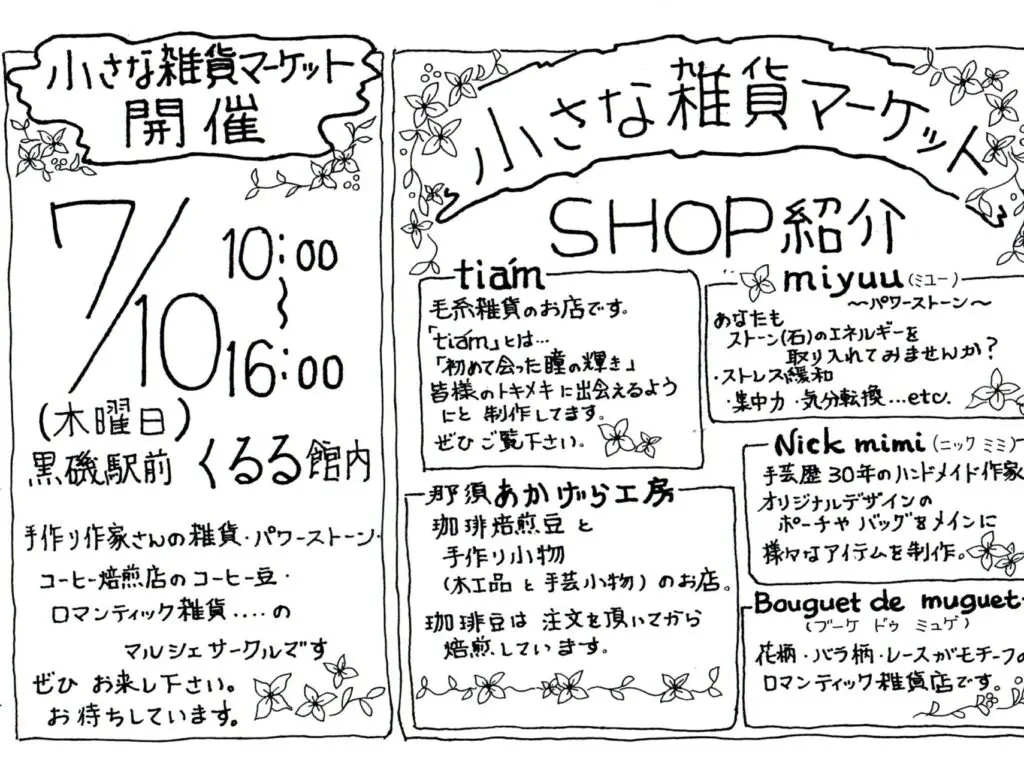 小さな雑貨マーケット
開催
7/10
10:00
〜
16:00
(木曜日)
黒磯駅前 くるる館内
手作り作家さんの雑貨・パワーストーン・
コーヒー焙煎店のコーヒー豆・
ロマンティック雑貨....の
マルシェサークルです
ぜひ お来し下さい。
お待ちしています。
小さな雑貨マーケット
SHOP紹介
tiám
毛糸雑貨のお店です。
「tiám」とは…
「初めて会った瞳の輝き」
皆様のトキメキに出会えるよう
にと 制作してます。
ぜひ ご覧下さい。
那須あかげら工房
珈琲焙煎豆と
手作り小物
(木工品と手芸小物)のお店。
珈琲豆は 注文を頂いてから
焙煎しています。
miyuu(ミユー)
〜パワーストーン〜
あなたも
ストーン(石)のエネルギーを
取り入れてみませんか?
・ストレス緩和
・集中力・気分転換…etc.
Nick mimi(ニック ミミ)
手芸歴30年のハンドメイド作家
オリジナルデザインの
ポーチや バッグをメインに
様々なアイテムを制作。
Bouguet de muguet
(ブーケ ドゥ ミュゲ)
花柄・バラ柄・レースがモチーフの
ロマンティック雑貨店です。